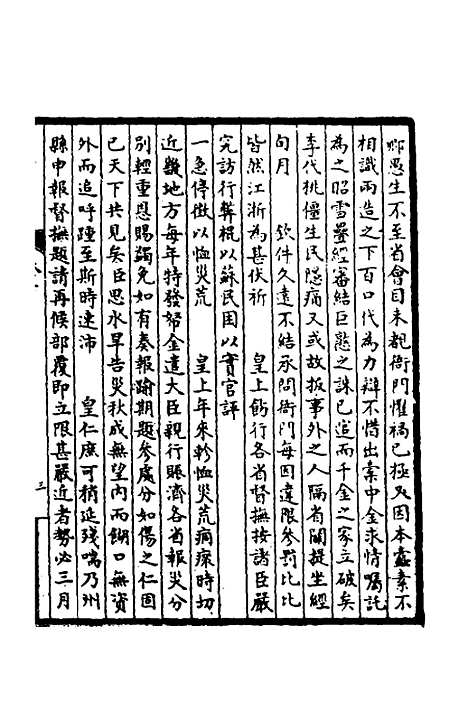 鄉愚生不至省會目未覩衙門懼禍已極又因本蠹素不
相識兩造之下百口代為力辯不惜出橐中金求情囑託
為之昭雪疊經審結巨憝之誅已逭而千金之家立破矣
李代桃僵生民隱痛又或故扳事外之人隔省關提坐經
旬月　欽件久遠不結承問衙門每因違限參罰比比
皆然江浙為甚伏祈　皇上飭行各省督撫按諸臣嚴
究訪行弊棍以蘇民困以實官評
一急停徵以恤災荒　皇上年來軫恤災荒痌瘝時切
近畿地方每年特發帑金遣大臣親行賑濟各省報災分
別輕重恩賜蠲免如有奏報踰期題參處分如傷之仁固
已天下共見矣臣思水旱告災秋成無望內而餬口無資
外而追呼踵至斯時速沛　皇仁庶可稍延殘喘乃州
縣申報督撫題請再候部覆即立限甚嚴近者勢必三月
三